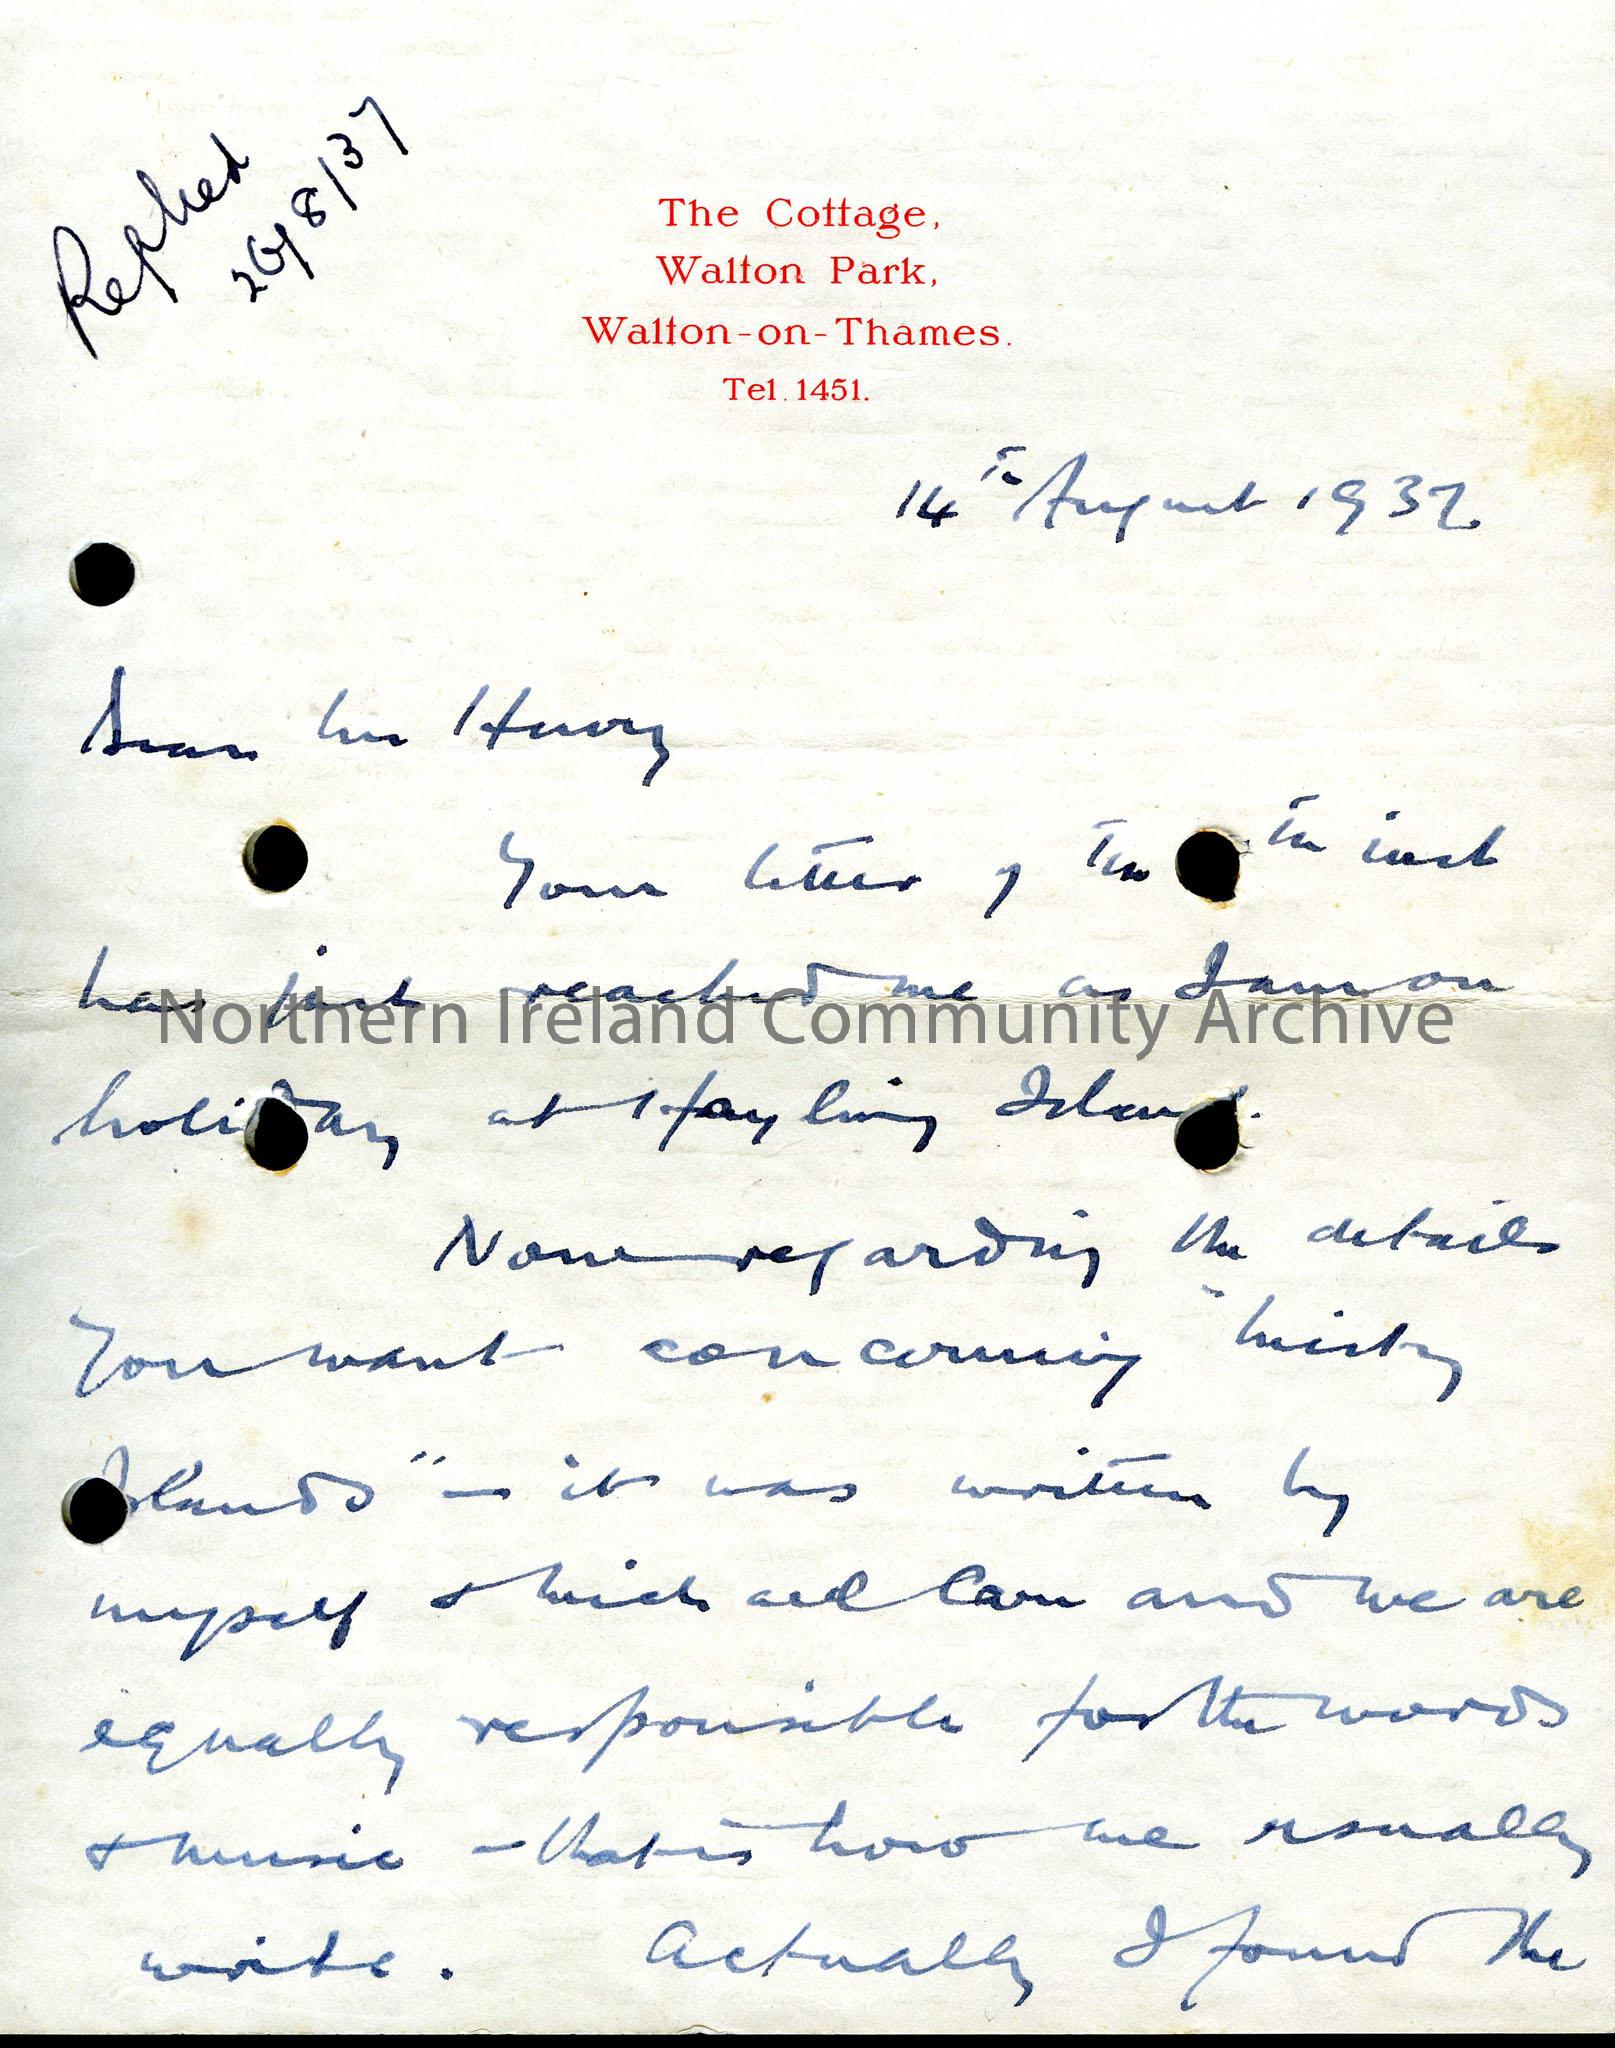 Replied
26/8/37
The Cottage,
Walton Park,
Walton-on-Thames.
Tel. 1451.
14th August 1937.
Dear Mr Henry
Your letter of the th inst
has just reached me as I am on
Northern Ireland Community Archive
holiday at Hayling Island.
Now regarding the details
you want concerning "Misty
Islands" - it was written by
myself & Michael Carr and we are
equally responsible for the words
& music - that is how we usually
write. Actually I found the